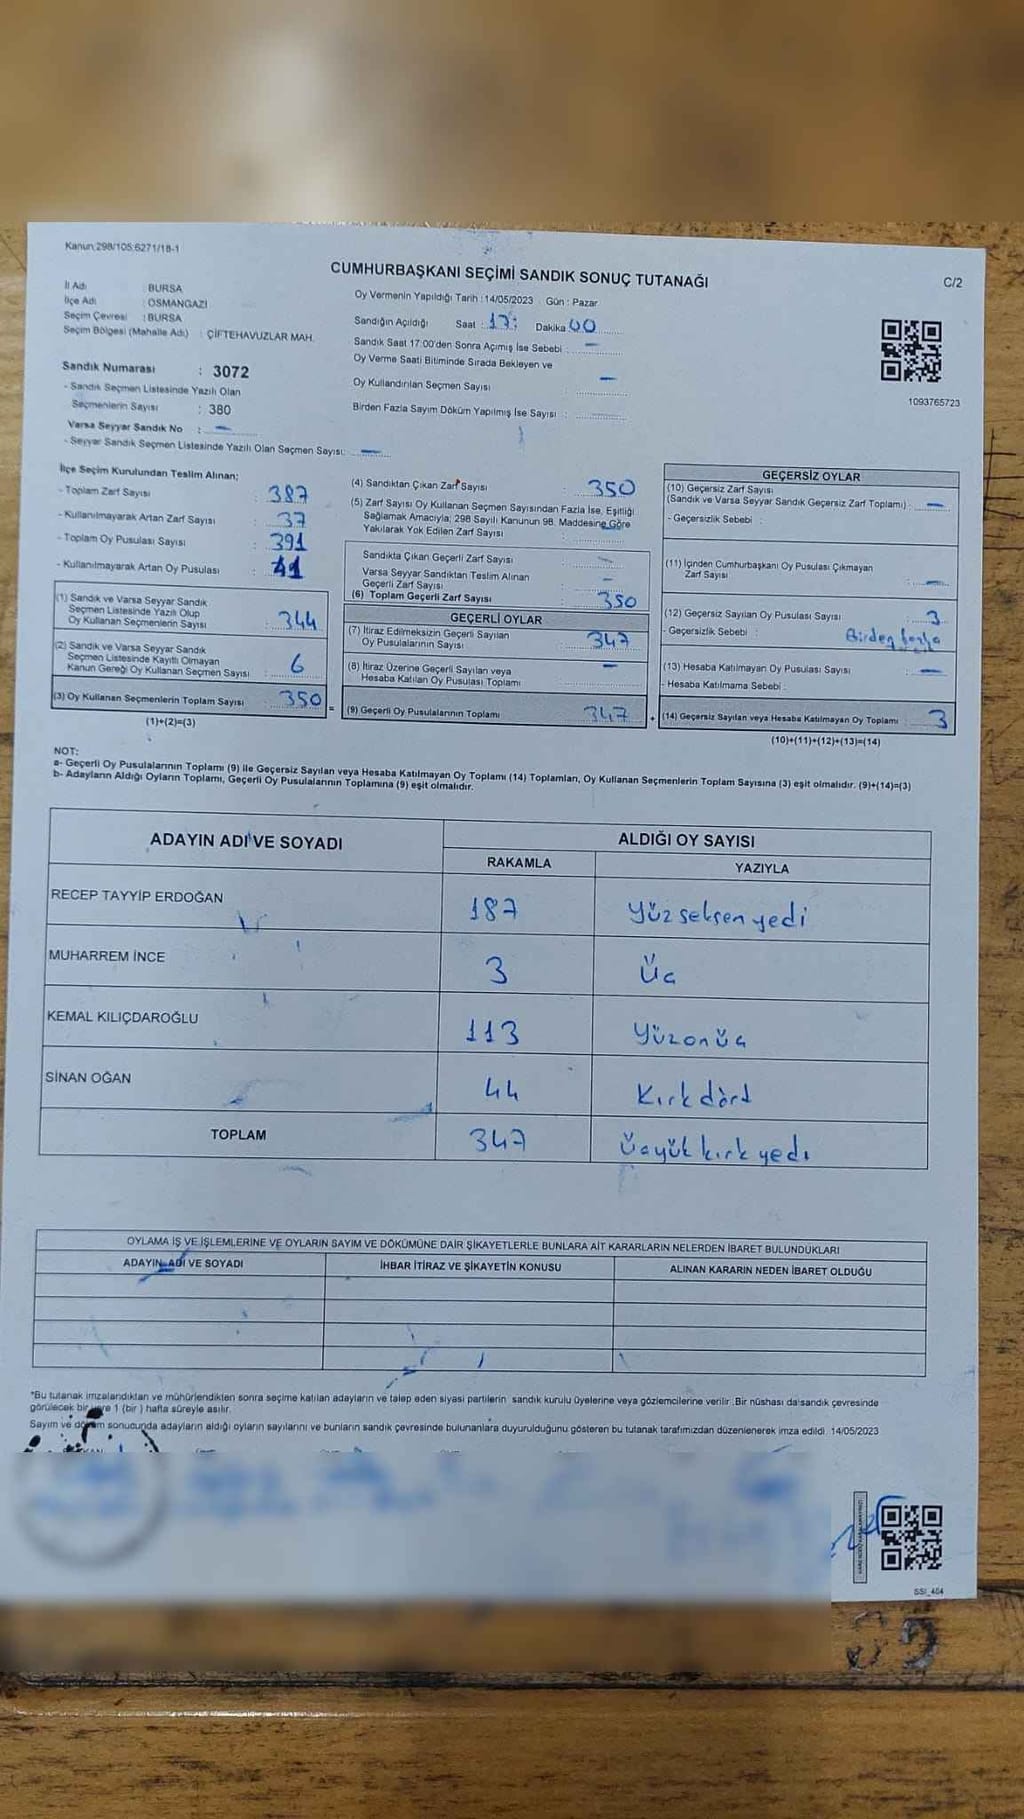 Kanun:298/105;6271/18-1
CUMHURBAŞKANI SEÇİMİ SANDIK SONUÇ TUTANAĞI
C/2
İl Adı : BURSA
İlçe Adı : OSMANGAZİ
Seçim Çevresi : BURSA
Seçim Bölgesi (Mahalle Adı) : ÇİFTEHAVUZLAR MAH.
Sandık Numarası : 3072
- Sandık Seçmen Listesinde Yazılı Olan
Seçmenlerin Sayısı : 380
Varsa Seyyar Sandık No : —
- Seyyar Sandık Seçmen Listesinde Yazılı Olan Seçmen Sayısı: —
Oy Vermenin Yapıldığı Tarih : 14/05/2023 Gün : Pazar
Sandığın Açıldığı Saat : 17: Dakika 00
Sandık Saat 17:00'den Sonra Açımış İse Sebebi : —
Oy Verme Saati Bitiminde Sırada Bekleyen ve
Oy Kullandırılan Seçmen Sayısı —
Birden Fazla Sayım Döküm Yapılmış İse Sayısı :
1093765723
İlçe Seçim Kurulundan Teslim Alınan;
- Toplam Zarf Sayısı : 387
- Kullanılmayarak Artan Zarf Sayısı : 37
- Toplam Oy Pusulası Sayısı : 391
- Kullanılmayarak Artan Oy Pusulası : 41
(1) Sandık ve Varsa Seyyar Sandık
Seçmen Listesinde Yazılı Olup
Oy Kullanan Seçmenlerin Sayısı : 344
(2) Sandık ve Varsa Seyyar Sandık
Seçmen Listesinde Kayıtlı Olmayan
Kanun Gereği Oy Kullanan Seçmen Sayısı : 6
(3) Oy Kullanan Seçmenlerin Toplam Sayısı : 350
(1)+(2)=(3)
(4) Sandıktan Çıkan Zarf Sayısı : 350
(5) Zarf Sayısı Oy Kullanan Seçmen Sayısından Fazla İse, Eşitliği
Sağlamak Amacıyla; 298 Sayılı Kanunun 98. Maddesine Göre
Yakılarak Yok Edilen Zarf Sayısı : —
Sandıkta Çıkan Geçerli Zarf Sayısı : —
Varsa Seyyar Sandıktan Teslim Alınan
Geçerli Zarf Sayısı : —
(6) Toplam Geçerli Zarf Sayısı : 350
GEÇERLİ OYLAR
(7) İtiraz Edilmeksizin Geçerli Sayılan
Oy Pusulasının Sayısı : 347
(8) İtiraz Üzerine Geçerli Sayılan veya
Hesaba Katılan Oy Pusulası Toplamı : —
= (9) Geçerli Oy Pusulalarının Toplamı : 347
GEÇERSİZ OYLAR
(10) Geçersiz Zarf Sayısı
(Sandık ve Varsa Seyyar Sandık Geçersiz Zarf Toplamı) : —
- Geçersizlik Sebebi :
(11) İçinden Cumhurbaşkanı Oy Pusulası Çıkmayan
Zarf Sayısı : —
(12) Geçersiz Sayılan Oy Pusulası Sayısı : 3
- Geçersizlik Sebebi : Birden fazla
(13) Hesaba Katılmayan Oy Pusulası Sayısı : —
- Hesaba Katılmama Sebebi :
+ (14) Geçersiz Sayılan veya Hesaba Katılmayan Oy Toplamı : 3
(10)+(11)+(12)+(13)=(14)
NOT:
a- Geçerli Oy Pusulalarının Toplamı (9) ile Geçersiz Sayılan veya Hesaba Katılmayan Oy Toplamı (14) Toplamları, Oy Kullanan Seçmenlerin Toplam Sayısına (3) eşit olmalıdır. (9)+(14)=(3)
b- Adayların Aldığı Oyların Toplamı, Geçerli Oy Pusulalarının Toplamına (9) eşit olmalıdır.
ADAYIN ADI VE SOYADI ALDIĞI OY SAYISI
RAKAMLA YAZIYLA
RECEP TAYYİP ERDOĞAN 187 Yüz seksen yedi
MUHARREM İNCE 3 Üç
KEMAL KILIÇDAROĞLU 113 Yüzonüç
SİNAN OĞAN 44 Kırk dört
TOPLAM 347 Üçyük kırk yedi
OYLAMA İŞ VE İŞLEMLERİNE VE OYLARIN SAYIM VE DÖKÜMÜNE DAİR ŞİKAYETLERLE BUNLARA AİT KARARLARIN NELERDEN İBARET BULUNDUKLARI
ADAYIN ADI VE SOYADI İHBAR İTİRAZ VE ŞİKAYETİN KONUSU ALINAN KARARIN NEDEN İBARET OLDUĞU
*Bu tutanak imzalandıktan ve mühürlendikten sonra seçime katılan adayların ve talep eden siyasi partilerin sandık kurulu üyelerine veya gözlemcilerine verilir. Bir nüshası da sandık çevresinde
görülecek bir yere 1 (bir) hafta süreyle asılır.
Sayım ve döküm sonucunda adayların aldığı oyların sayılarını ve bunların sandık çevresinde bulunanlara duyurulduğunu gösteren bu tutanak tarafımızdan düzenlenerek imza edildi. 14/05/2023
SSI_464